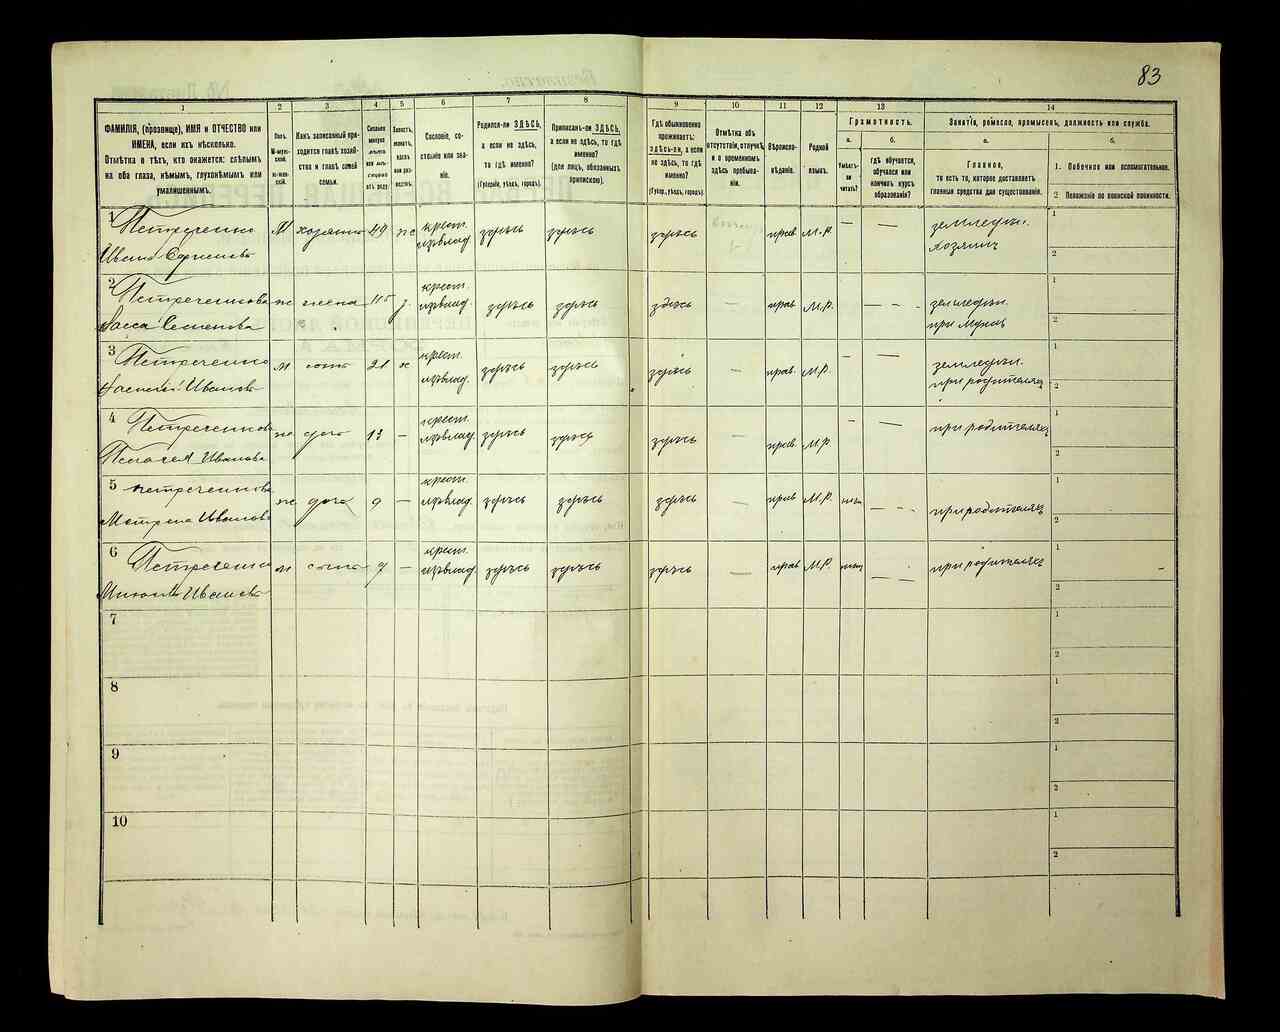 83
1
2
3
4
5
6
7
8
9
10
11
12
13
14
ФАМИЛІЯ, (прозвище), ИМЯ и ОТЧЕСТВО или
ИМЕНА, если ихъ нѣсколько.
Отмѣтка о тѣхъ, кто окажется: слѣпымъ
на оба глаза, нѣмымъ, глухонѣмымъ или
умалишеннымъ.
Полъ.
М-муж-
ской.
Ж-жен-
скій.
Какъ записанный при-
ходится главѣ хозяй-
ства и главѣ своей
семьи.
Сколько
минуло
лѣтъ
или мѣ-
сяцевъ
отъ роду.
Холостъ,
женатъ,
вдовъ
или раз-
веденъ.
Сословіе, со-
стояніе или зва-
ніе.
Родился-ли ЗДѢСЬ,
а если не здѣсь,
то гдѣ именно?
(Губернія, уѣздъ, городъ).
Приписанъ-ли ЗДѢСЬ,
а если не здѣсь, то гдѣ
именно?
(для лицъ, обязанныхъ
припискою).
Гдѣ обыкновенно
проживаетъ:
здѣсь-ли, а если
не здѣсь, то гдѣ
именно?
(Губер., уѣздъ, городъ).
Отмѣтка объ
отсутствіи, отлучкѣ
и о временномъ
здѣсь пребыва-
ніи.
Вѣроиспо-
вѣданіе.
Родной
языкъ.
Грамотность.
а.
б.
Умѣетъ-
ли
читать?
гдѣ обучается,
обучался или
кончилъ курсъ
образованія?
Занятіе, ремесло, промыселъ, должность или служба.
а.
б.
Главное,
то есть то, которое доставляетъ
главныя средства для существованія.
1. Побочное или вспомогательное.
2 Положеніе по воинской повинности.
1 Петреченко М хозяинъ 49 ж крест. здѣсь здѣсь здѣсь прав М.Р. — — земледѣл. 1
Иванъ хозяинъ 2
2 Петреченкова ж жена крест. здѣсь здѣсь здѣсь — прав М.Р. — — земледѣл. 1
Семенова при мужѣ 2
3 Петреченко м сынъ 21 х крест. здѣсь здѣсь здѣсь — прав. М.Р. — — земледѣл. 1
Василій Ивановъ при родителяхъ 2
4 Петреченкова ж дочь 13 — крест. здѣсь здѣсь здѣсь — прав М.Р. — — при родителяхъ 1
Пелагея Иванова 2
5 Петреченкова ж дочь 9 — крест. здѣсь здѣсь здѣсь — прав М.Р. нѣт — при родителяхъ 1
Матрена Иванова 2
6 Петреченко м сынъ 7 — крест. здѣсь здѣсь здѣсь — прав М.Р. нѣт — при родителяхъ 1
Ивановъ 2
7 1
2
8 1
2
9 1
2
10 1
2